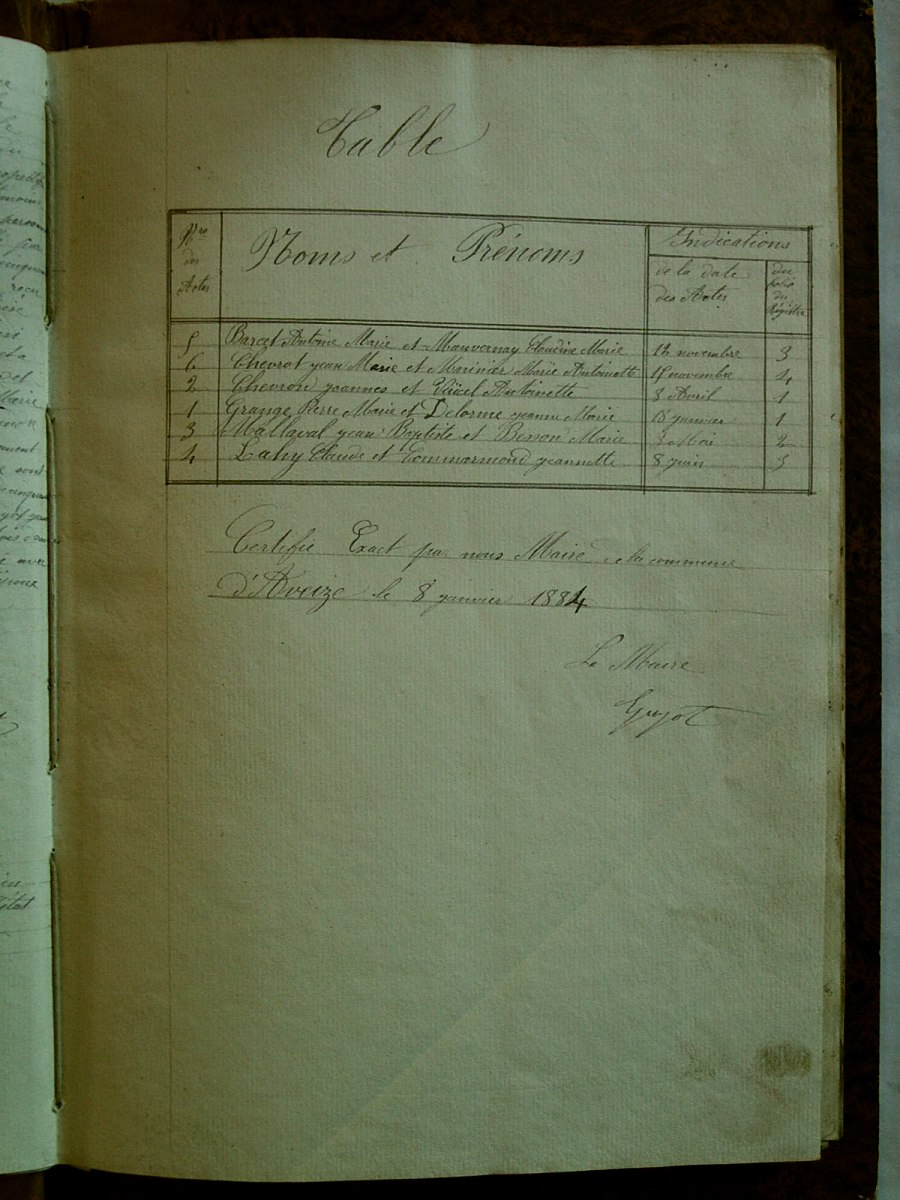 Table
Nro des Actes
Noms et Prénoms
Indications
de la date des Actes
du folio du Régistre
5 Barcet Antoine Marie et Mauvernay Claudine Marie 12 novembre 3
6 Chevrot jean Marie et Marinier Marie Antoinette 15 novembre 4
2 Chevron joannes et Antoinette 3 Avril 1
1 Grange Pierre Marie et Delorme jeanne Marie 18 janvier 1
3 Mallaval jean Baptiste et Besson Marie 3 Mai 2
4 Claude et jeannette 8 juin 3
Certifié Exact par nous Maire de la commune
d'Aveize le 8 janvier 1884
Le Maire
Guyot